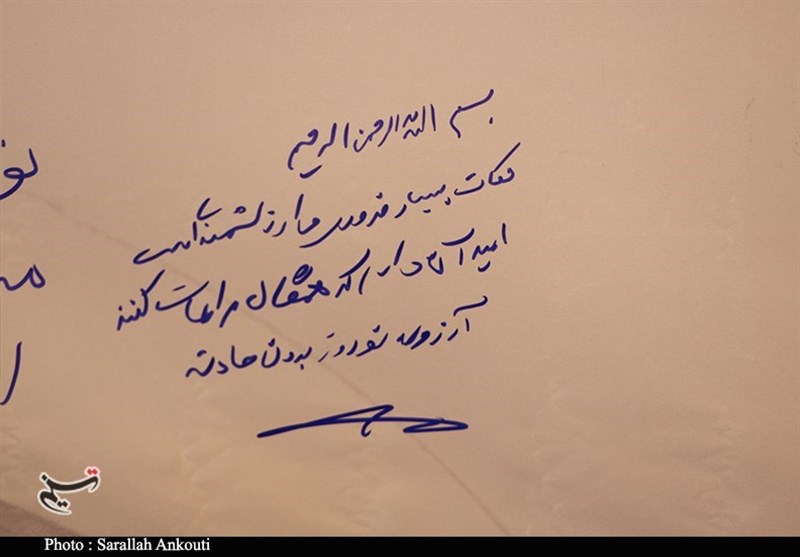 بسم الله الرحمن الرحیم
نکات بسیار ضروری و ارزشمندی است
امید آن دارم که همگان مراعات کنند
آرزوی نوروز بدون حادثه
تسنیم
Photo : Sarallah Ankouti